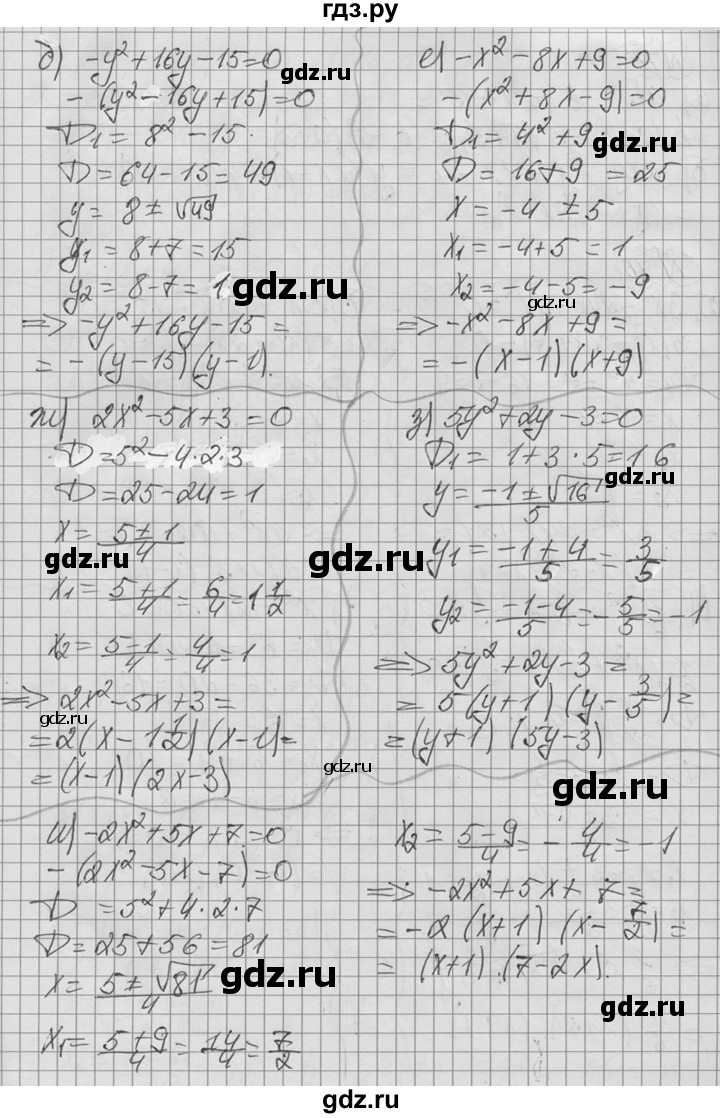 гдз.ру
д) -y² + 16y - 15 = 0
- (y² - 16y + 15) = 0
D₁ = 8² - 15
D = 64 - 15 = 49
y = 8 ± √49
y₁ = 8 + 7 = 15
y₂ = 8 - 7 = 1
=> -y² + 16y - 15 =
= - (y - 15) (y - 1).
е) -x² - 8x + 9 = 0
- (x² + 8x - 9) = 0
D₁ = 4² + 9
D = 16 + 9 = 25
x = -4 ± 5
x₁ = -4 + 5 = 1
x₂ = -4 - 5 = -9
=> -x² - 8x + 9 =
= - (x - 1) (x + 9)
ж) 2x² - 5x + 3 = 0
D = 5² - 4 · 2 · 3
D = 25 - 24 = 1
x = (5 ± 1)/4
x₁ = (5 + 1)/4 = 6/4 = 1 1/2
x₂ = (5 - 1)/4 = 4/4 = 1
=> 2x² - 5x + 3 =
= 2 (x - 1 1/2) (x - 1) =
= (x - 1) (2x - 3)
з) 5y² + 2y - 3 = 0
D₁ = 1 + 3 · 5 = 16
y = (-1 ± √16)/5
y₁ = (-1 + 4)/5 = 3/5
y₂ = (-1 - 4)/5 = - 5/5 = -1
=> 5y² + 2y - 3 =
= 5 (y + 1) (y - 3/5) =
= (y + 1) (5y - 3)
и) -2x² + 5x + 7 = 0
- (2x² - 5x - 7) = 0
D = 5² + 4 · 2 · 7
D = 25 + 56 = 81
x = (5 ± √81)/4
x₁ = (5 + 9)/4 = 14/4 = 7/2
x₂ = (5 - 9)/4 = - 4/4 = -1
=> -2x² + 5x + 7 =
= -2 (x + 1) (x - 7/2) =
= (x + 1) · (7 - 2x).
gdz.ru
gdz.ru
gdz.ru
gdz.ru
gdz.ru
gdz.ru
gdz.ru
gdz.ru
gdz.ru
gdz.ru
gdz.ru
gdz.ru
gdz.ru